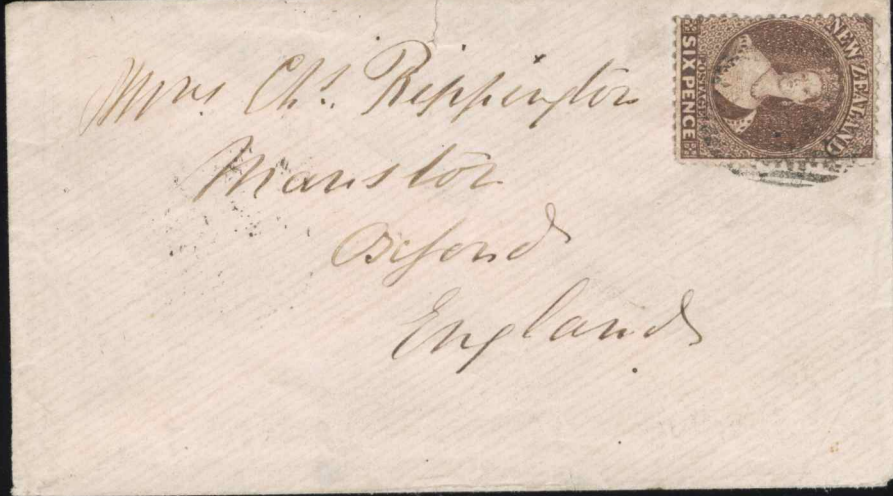 Mrs Chs. Rippington
Manston
Oxford
England
NEW ZEALAND
POSTAGE
SIX PENCE